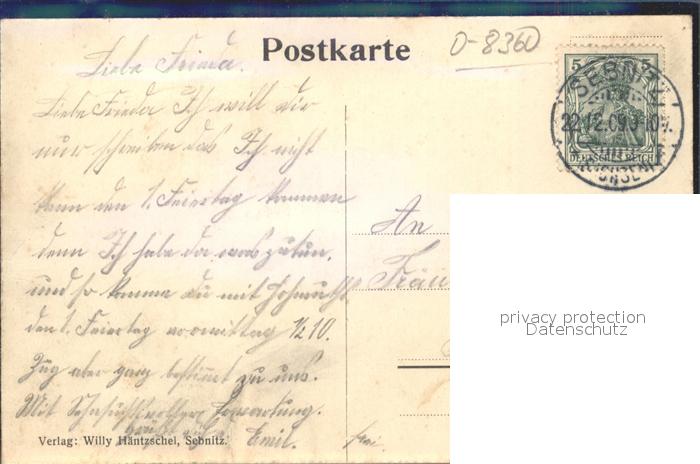 Postkarte
D-8360
5 5
DEUTSCHES REICH
SEBNITZ
22.12.09. 9-10V.
(SACHSEN)
Liebe Frieda.
Liebe Frieda Ich will dir
nur schreiben das Ich nicht
kann den 1. Feiertag kommen
denn Ich habe da was zutun.
und so komme du mit
den 1. Feiertag vormittag ½10.
Zug aber ganz bestimmt zu uns.
Mit Sehnsuchtsvoller Erwartung.
grüßt
Emil.
An
Fräu
privacy protection
Datenschutz
Verlag: Willy Häntzschel, Sebnitz.